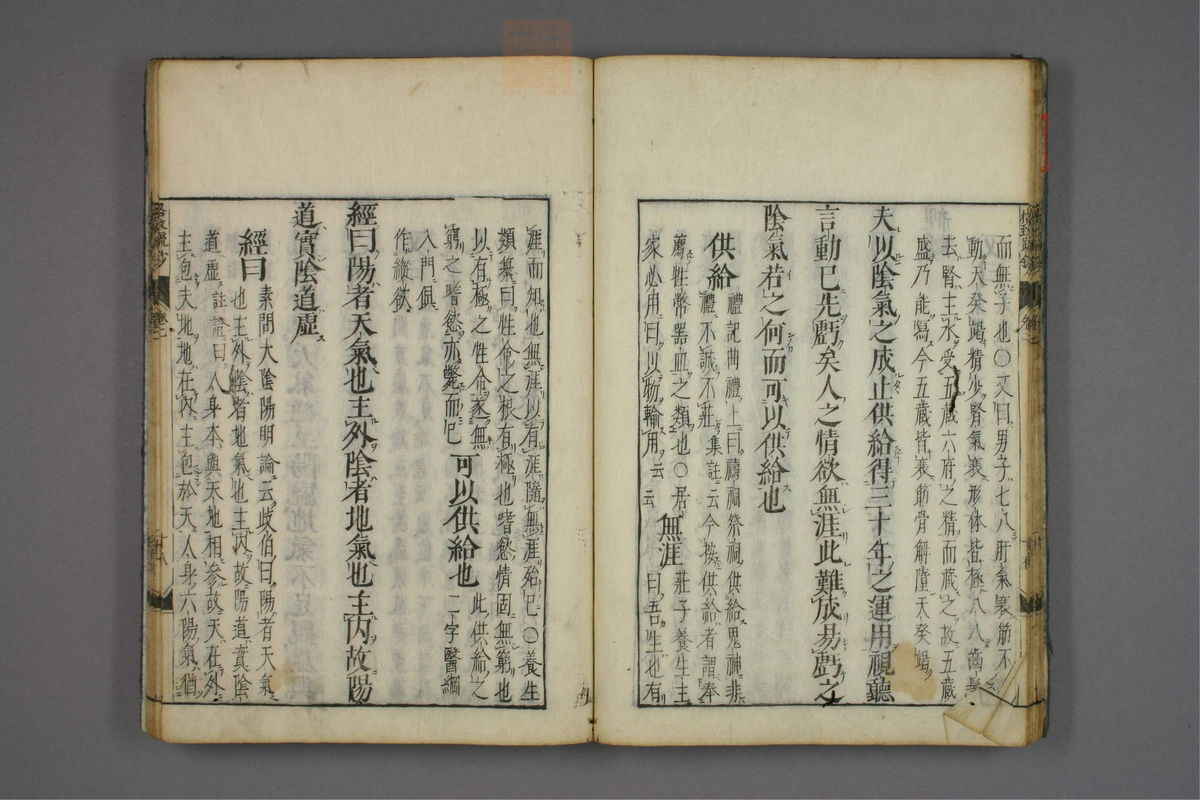 而無子也○又曰男子七八肝氣衰筋不
動天癸竭精少腎氣衰形体皆極八八齒髮
去腎主水受五藏六府之精而藏之故五藏
盛乃能瀉今五藏皆衰筋骨解墮天癸竭
夫以陰氣之成止供給得三十年之運用視聽
言動已先虧矣人之情欲無涯此難成易虧之
陰氣若之何而可以供給也
供給 禮記曲禮上曰禱祠祭祠供給鬼神非
禮不誠不莊 集註云今按供給者謂奉
薦牲幣器皿之類也○居
家必用曰以物輸用云云 無涯 莊子養生主
曰吾生也有
涯而知也無涯以有涯隨無涯殆已○養生
類纂曰性命之根有極也嗜慾情固無窮也
以有極之性命逐無
窮之嗜慾亦斃而已 可以供給也 此供給之
二字醫綱
入門俱
作縱欲
經曰陽者天氣也主外陰者地氣也主內故陽
道實陰道虛
經曰 素問大陰陽明論云歧伯曰陽者天氣
也主外陰者地氣也主內故陽道實陰
道虛 註證曰人身本與天地相參故天在外
主包夫地地在內主包於天人身六陽氣猶